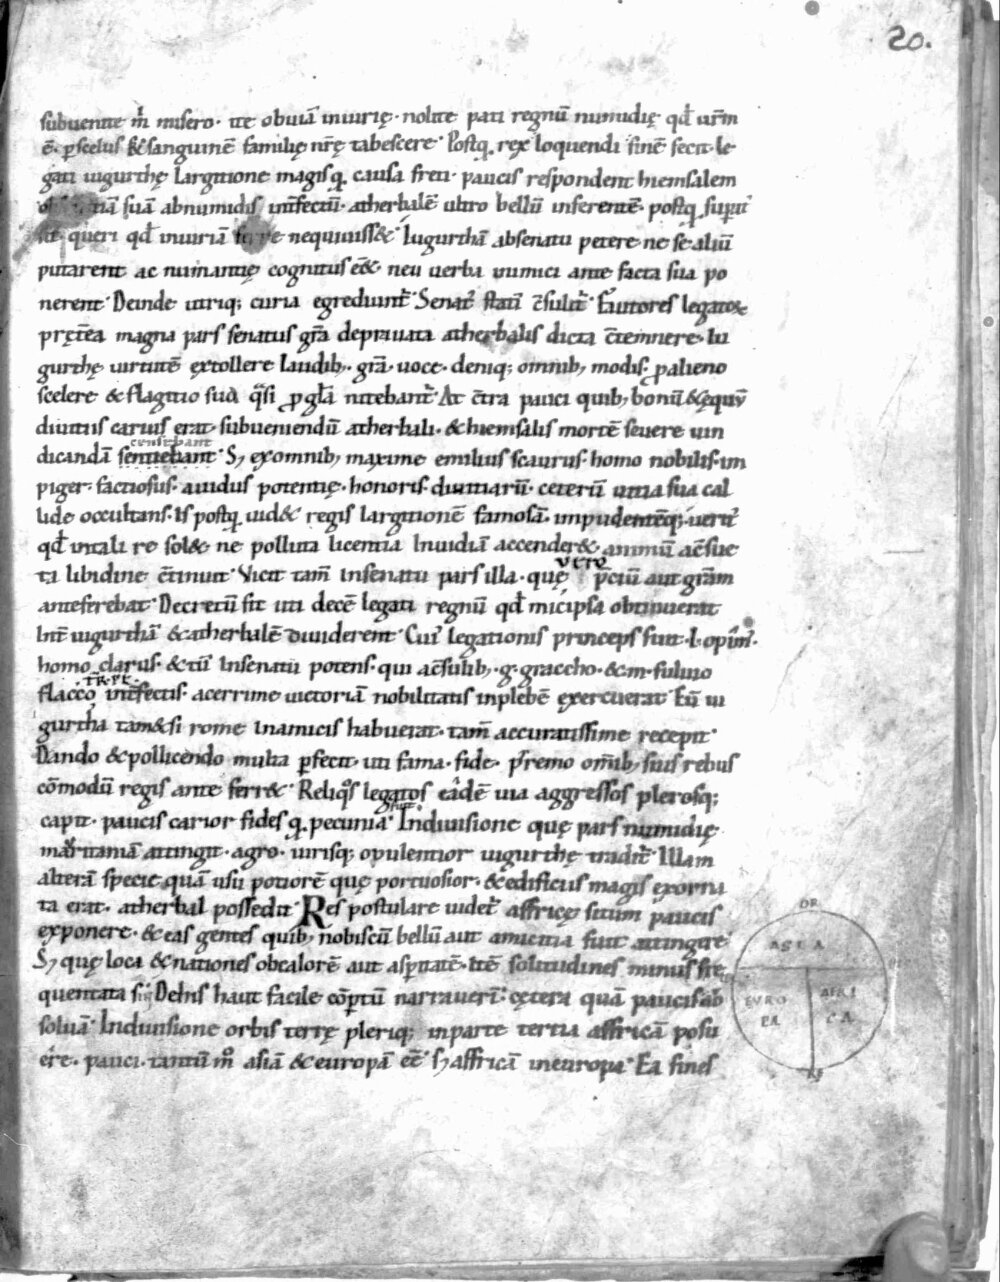 20.
subuenite m̄ misero· ite obuiā iniurię· nolite pati regnū numidię qd̄ ur̄m
ē· p̱ scelus & sanguinē familię nr̄ę tabescere· Postq̄ rex loquendi finē fecit· le
gati iugurthę largitione magisq̄ causa freti· paucis respondent hiemsalem
suā abnumidis int̄fectū· atherbalē ultro bellū inferentē· postq̄ supat᷒
sit queri qd̄ iniuriā nequiuiss&· Iugurthā absenatu petere ne se aliū
putarent ac numantię cognitus ēe& neu uerba inimici ante facta sua po
nerent· Deinde utriq; curia egrediunt᷒· Senat᷒ statī c̄sulit᷒· Fautores legatoꝝ
pręt̄ea magna pars senatus gr̄a deprauata atherbalis dicta c̄temnere· Iu
gurthę uirtutē extollere laudib;· gr̄a· uoce· deniq; omnib; modis· ꝓ alieno
scelere & flagitio suā q̄si ꝓ gl̄a nitebant᷒· At c̄tra pauci quib; bonū & ęquū
diuitiis carius erat· subueniendū atherbali· & hiemsalis mortē seuere uin
censebant
dicandā sentiebant· S; ex omnib; maxime emilius scaurus· homo nobilis· im
piger· factiosus· auidus potentię· honoris diuitiarū· ceterū uitia sua cal
lide occultans· Is postq̄ uid& regis largitionē famosā· impudentēq; uerit᷒
qd̄ intali re sol& ne polluta licentia Inuidiā accender& animū ac̄sue
ta libidine c̄tinuit· Vicit tam̄ Insenatu pars illa· quę
vero
p̄ciū aut gr̄am
anteferebat· Decretū fit uti decē legati regnū qd̄ micipsa obtinuerat
Int̄ iugurthā & atherbalē diuiderent· Cui᷒ legationis princeps fuit· l· opim᷒·
homo clarus· & tū Insenatu potens· qui ac̄sulib;· g· graccho· & m· fuluio
flacco int̄fectis· acerrime uictoriā nobilitatis inplebē exercuerat· Eū iu
gurtha tam&si rome Inamicis habuerat· tam̄ accuratissime recepit·
Dando & pollicendo multa p̱fecit· uti fama· fide· p̱remo om̄ib; suis rebus
cōmodū regis ante ferr&· Reliq̊s legatos eādē uia aggressos plerosq;
capit· paucis carior fides q̄ pecunia· Indiuisione quę pars numidię
mauritaniā attingit· agro· uirisq; opulentior iugurthę tradit᷒· Illam
alterā specie quā usu potiorē quę portuosior· & edificiis magis exorna
ta erat· atherbal possedit· Res postulare uidet᷒ affricę situm paucis
exponere· & eas gentes quib; nobiscū bellū aut amicitia fuit attingere·
S; quę loca & nationes obcalorē aut asp̱itatē· itē solitudines minus fre
quentata sūt· Dehis haut facile cōptū narrauerī· cętera quā paucis ab
soluā· Indiuisione orbis terrę pleriq; inparte tertia affricā posu
ere· pauci· tantū m̊ asiā & europā eē· s; affricā ineuropa· Ea fines
OR
ASIA
EVRO
PA
AFRI
CA